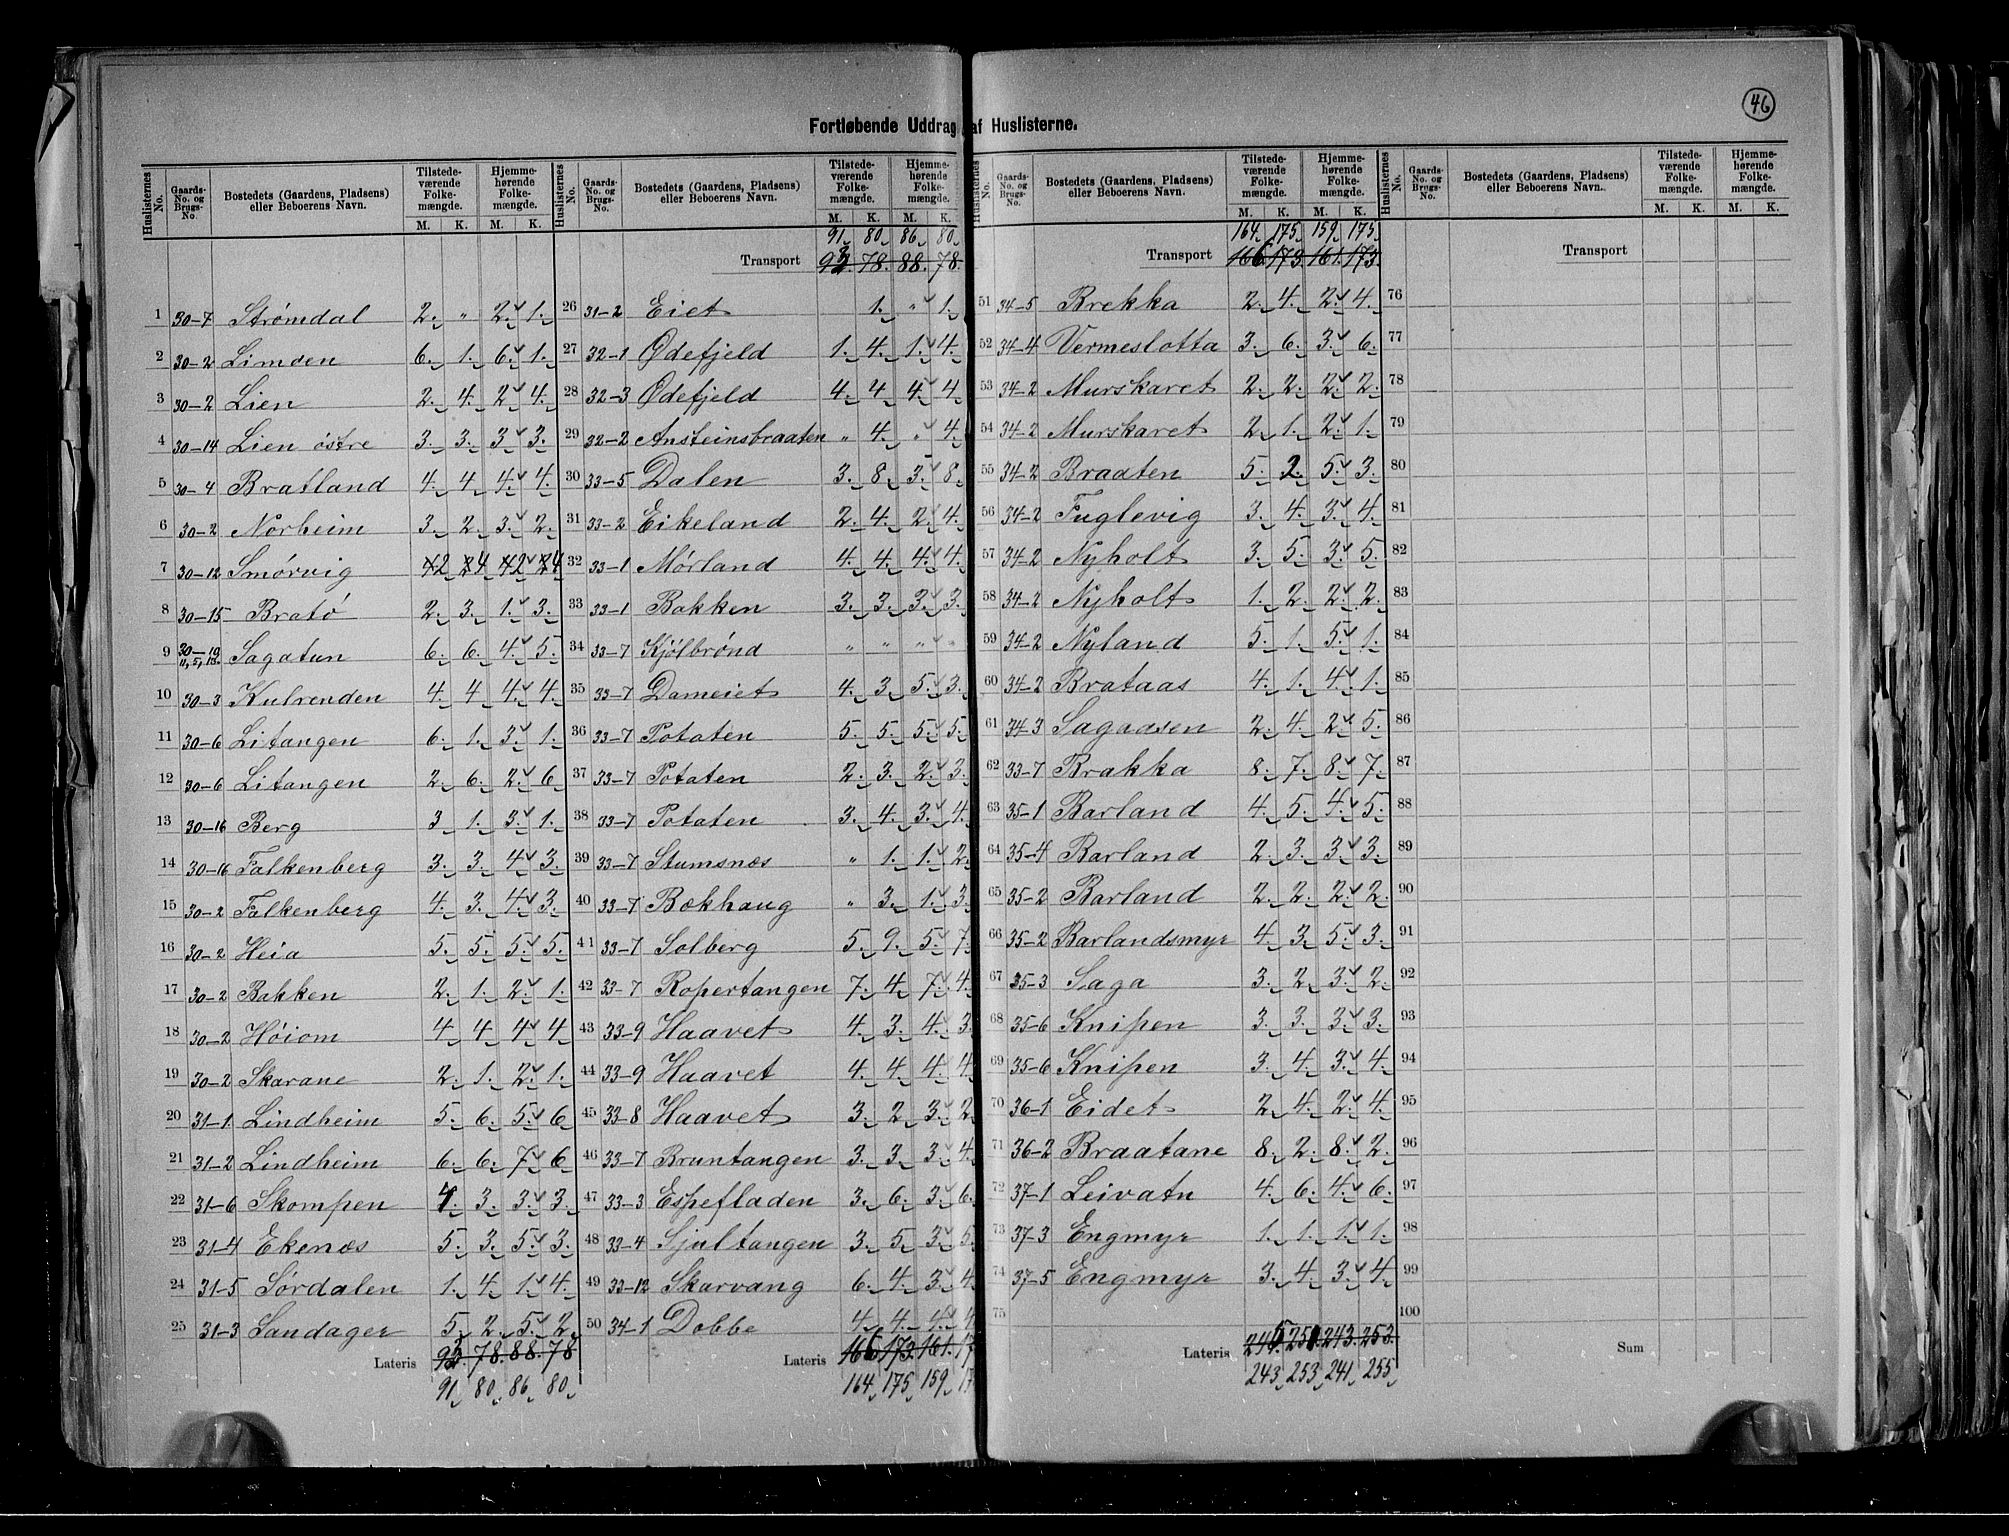 46
Fortløbende Uddrag af Huslisterne.
Huslisternes No. | Gaards-No. og Brugs-No. | Bostedets (Gaardens, Pladsens) eller Beboerens Navn. | Tilstedeværende Folkemængde. M. K. | Hjemmehørende Folkemængde. M. K.
1 30-7 Strømdal 2. " 2. 1.
2 30-2 Limoen 6. 1. 6. 1.
3 30-2 Lien 2. 4. 2. 4.
4 30-14 Lien østre 3. 3. 3. 3.
5 30-4 Bratland 4. 4. 4. 4.
6 30-2 Norheim 3. 2. 3. 2.
7 30-12 Smørvig 2 4 2 4
8 30-15 Bratø 2. 3. 1. 3.
9 30-10 11, 5, 13. Sagatun 6. 6. 4. 5.
10 30-3 Kulrenden 4. 4 4. 4.
11 30-6 Litangen 6. 1. 3. 1.
12 30-6 Litangen 2. 6. 2. 6
13 30-16 Berg 3 1. 3. 1.
14 30-16 Falkenberg 3. 3. 4. 3.
15 30-2 Falkenberg 4. 3. 4. 3.
16 30-2 Heia 5. 5. 5. 5.
17 30-2 Bakken 2. 1. 2. 1.
18 30-2 Høiom 4 4 4 4
19 30-2 Skarane 2. 1. 2. 1.
20 31-1 Lindheim 5. 6. 5. 6
21 31-2 Lindheim 6. 6. 7. 6
22 31-6 Skompen 4. 3. 3. 3.
23 31-4 Ekenæs 5. 3. 5. 3.
24 31-5 Sørdalen 1. 4. 1. 4.
25 31-3 Sandager 5. 2. 5. 2.
Lateris 93. 78. 88. 78
91 80 86 80
91 80 86 80
Transport 93. 78. 88. 78.
26 31-2 Eiet 1. " 1.
27 32-1 Ødefjeld 1. 4. 1. 4.
28 32-3 Ødefjeld 4. 4 4. 4
29 32-2 Ansteinsbraaten " 4. " 4.
30 33-5 Dalen 3. 8 3. 8
31 33-2 Eikeland 2. 4. 2. 4.
32 33-1 Mørland 4. 4. 4. 4.
33 33-1 Bakken 3. 3. 3. 3.
34 33-7 Kjølbrønd " " " "
35 33-7 Dameiet 4. 3 5. 3.
36 33-7 Potaten 5. 5. 5. 5.
37 33-7 Potaten 2. 3. 2. 3.
38 33-7 Potaten 3. 4. 3. 4.
39 33-7 Stumsnæs " 1. 1. 2.
40 33-7 Bækhaug " 3. 1. 3.
41 33-7 Solberg 5. 9. 5. 7.
42 33-7 Ropertangen 7. 4. 7. 4.
43 33-9 Haavet 4. 3. 4. 3
44 33-9 Haavet 4. 4. 4. 4
45 33-8 Haavet 3. 2 3. 2
46 33-7 Bruntangen 3. 3. 3. 4.
47 33-3 Espefladen 3. 6. 3. 6.
48 33-4 Sjultangen 3. 5. 3. 5.
49 33-12 Skarvang 6. 4. 3. 4
50 34-1 Dobbe 4. 4. 4. 4
Lateris 166. 173. 161. 17
164 175 159 17
164. 175. 159. 175.
Transport 166. 173. 161. 173.
51 34-5 Brekka 2. 4. 2. 4.
52 34-4 Vermeslotta 3. 6. 3. 6.
53 34-2 Murskaret 2. 2. 2. 2.
54 34-2 Murskaret 2. 1. 2. 1.
55 34-2 Braaten 5. 2. 5. 3.
56 34-2 Fuglevig 3. 4. 3. 4.
57 34-2 Nyholt 3. 5. 3. 5.
58 34-2 Nyholt 1. 2. 2. 2.
59 34-2 Nyland 5. 1. 5. 1.
60 34-2 Brataas 4. 1. 4. 1.
61 34-3 Sagaasen 2. 4. 2. 5.
62 33-7 Brakka 8. 7. 8. 7.
63 35-1 Barland 4. 5. 4. 5.
64 35-4 Barland 2. 3. 3. 3.
65 35-2 Barland 2. 2. 2. 2.
66 35-2 Barlandsmyr 4. 3. 5. 3.
67 35-3 Saga 3. 2. 3. 2.
68 35-6 Knipen 3. 3. 3. 3.
69 35-6 Knipen 3. 4. 3. 4.
70 36-1 Eidet 2. 4. 2. 4.
71 36-2 Braatane 8. 2. 8. 2.
72 37-1 Leivatn 4. 6. 4. 6.
73 37-3 Engmyr 1. 1. 1. 1.
74 37-5 Engmyr 3. 4. 3. 4.
75
Lateris 245. 251. 243. 253.
243. 253. 241. 255.
Transport
76
77
78
79
80
81
82
83
84
85
86
87
88
89
90
91
92
93
94
95
96
97
98
99
100
Sum